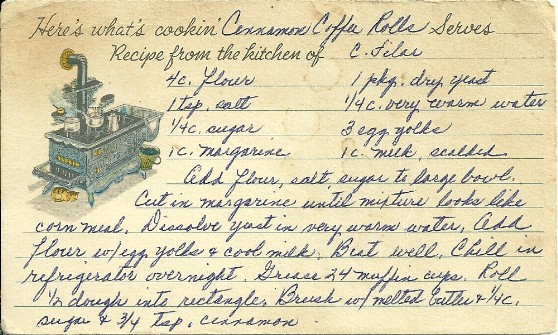 Here's what's cookin' Cinnamon Coffee Rolls Serves
Recipe from the kitchen of C. Filar
4c. flour 1 pkg. dry yeast
1 tsp. salt 1/4 c. very warm water
1/4 c. sugar 3 egg yolks
1 c. margarine 1c. milk, scalded
Add flour, salt, sugar to large bowl.
Cut in margarine until mixture looks like
corn meal. Dissolve yeast in very warm water, Add
flour w/egg yolks & cool milk. Beat well. Chill in
refrigerator overnight. Grease 24 muffin cups. Roll
1/2 dough into rectangle. Brush w/ melted butter & 1/4c.
sugar & 3/4 tsp. cinnamon.